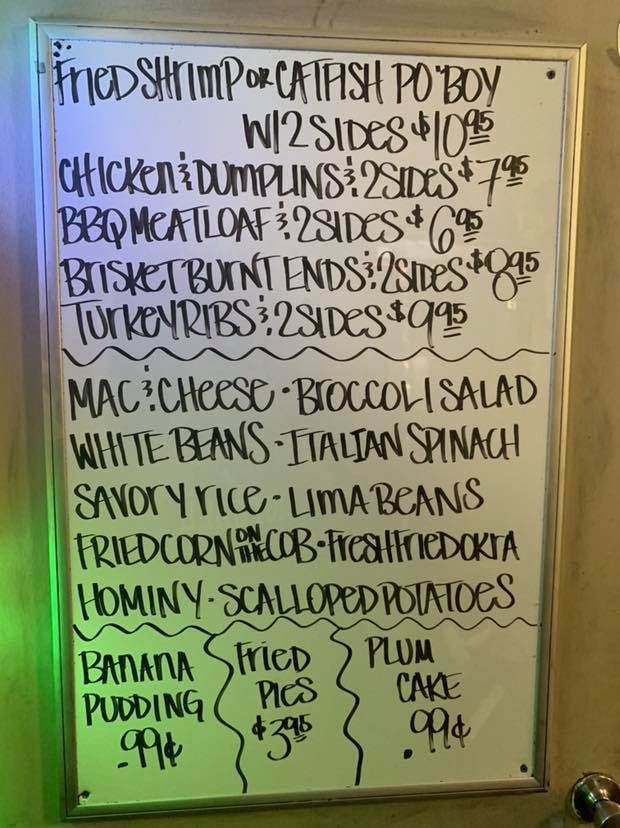 FRIED SHRIMP OR CATFISH PO'BOY
W/ 2 SIDES $10.95
CHICKEN & DUMPLINS & 2 SIDES $7.95
BBQ MEATLOAF & 2 SIDES $6.95
BRISKET BURNT ENDS & 2 SIDES $8.95
TURKEY RIBS & 2 SIDES $9.95
MAC & CHEESE · BROCCOLI SALAD
WHITE BEANS · ITALIAN SPINACH
SAVORY RICE · LIMA BEANS
FRIED CORN ON THE COB · FRESH FRIED OKRA
HOMINY · SCALLOPED POTATOES
BANANA
PUDDING
.99¢
FRIED
PIES
$3.95
PLUM
CAKE
.99¢